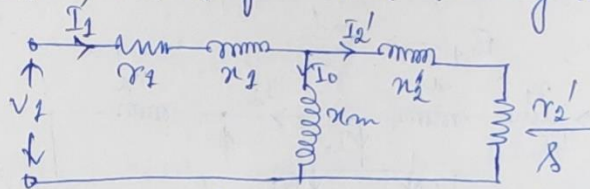 I1 I2'
r1 x1 I0 x2'
V1 xm r2'
s